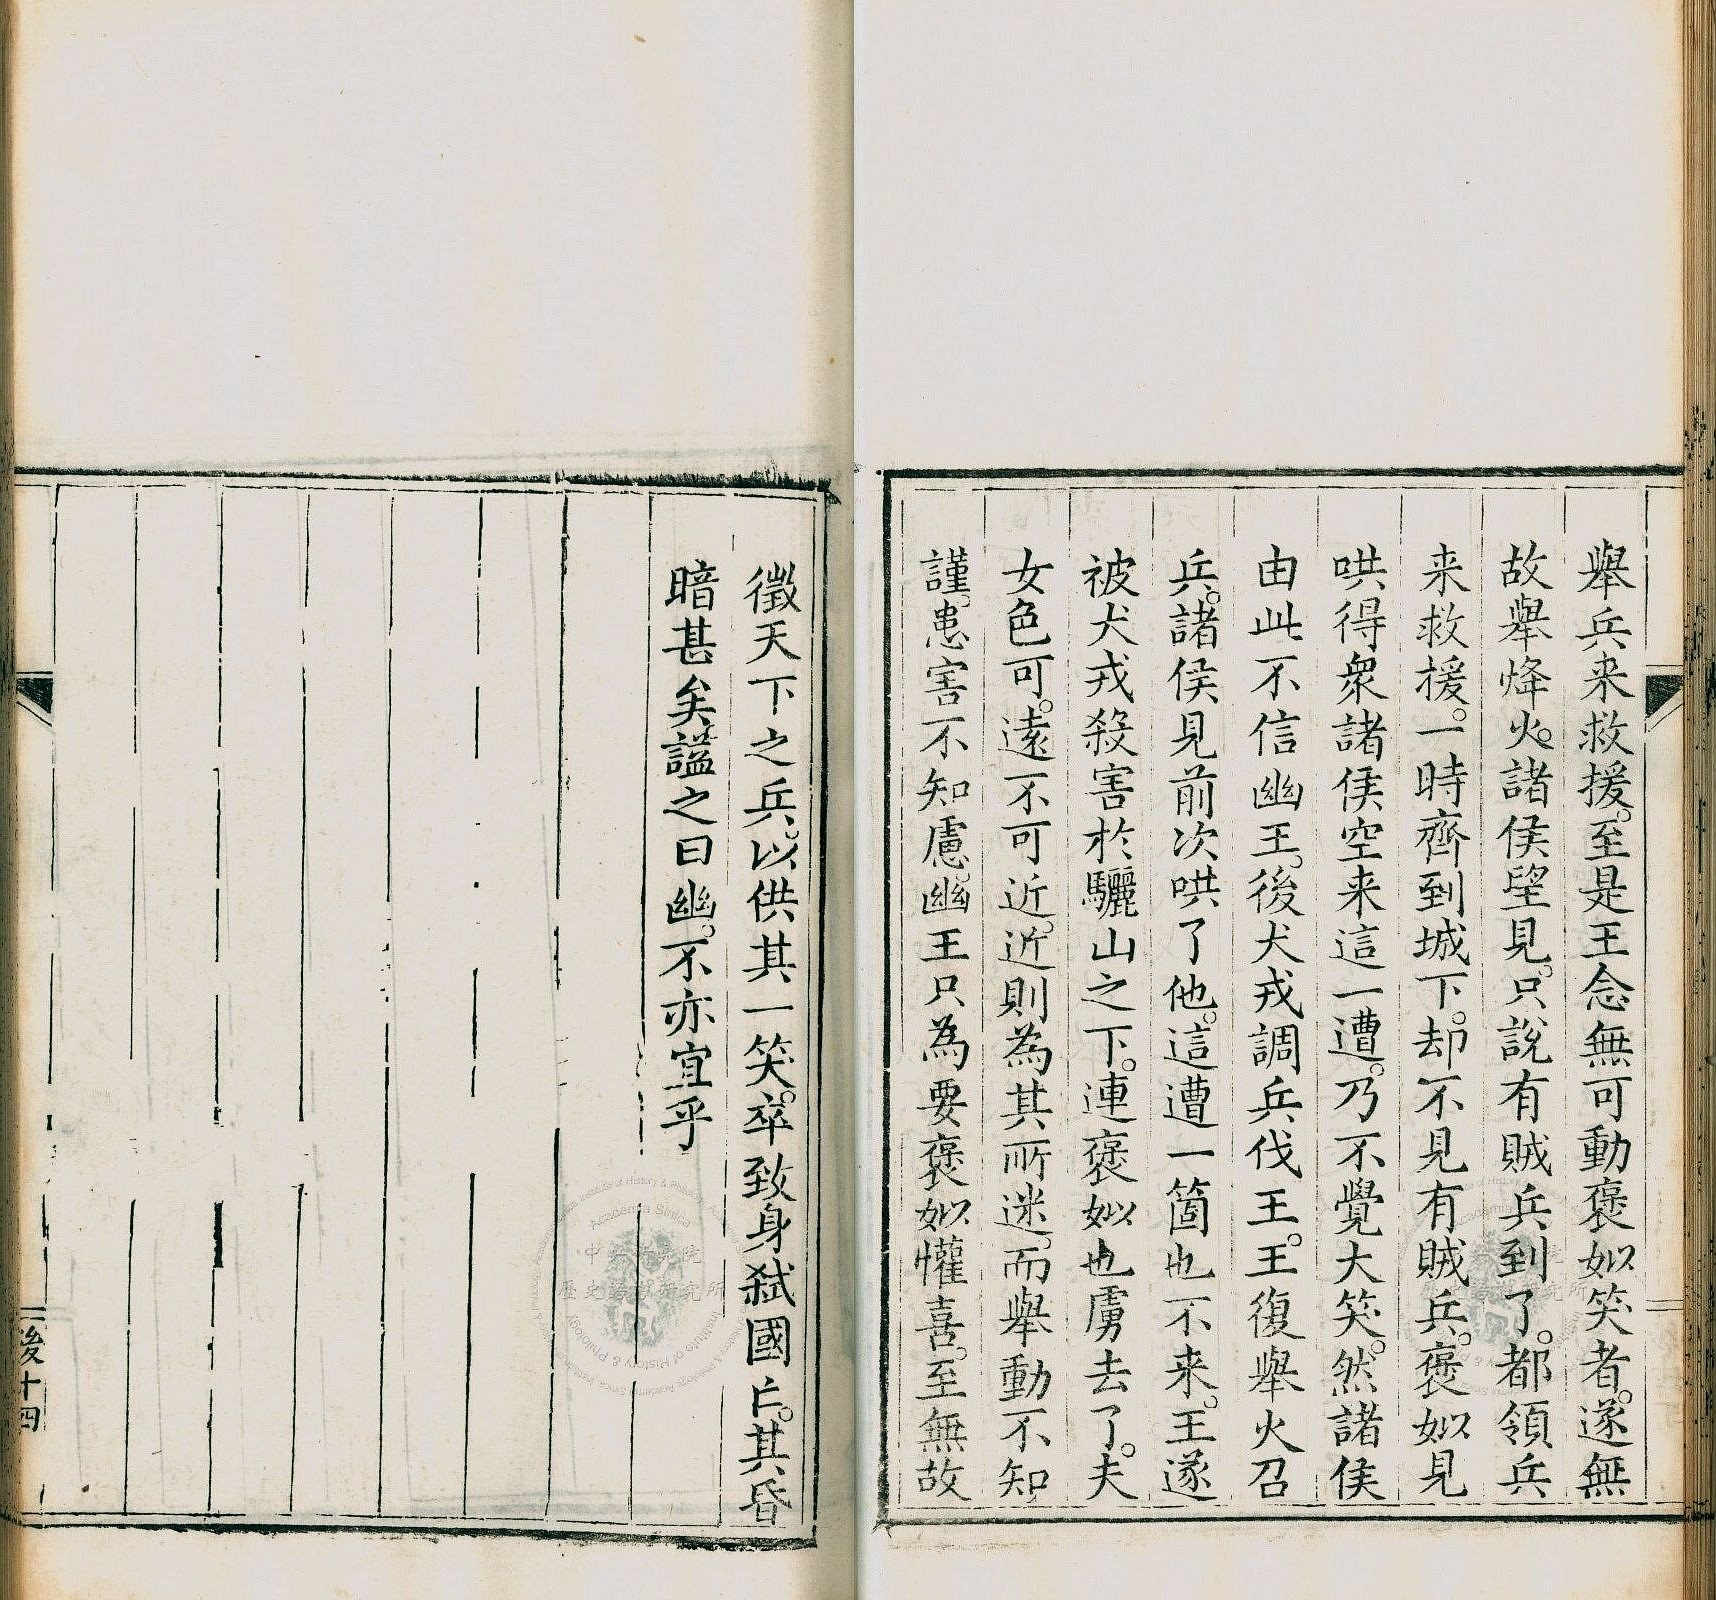 舉兵来救援。至是王念無可動褒姒笑者。遂無
故舉烽火。諸侯望見。只說有賊兵到了。都領兵
来救援。一時齊到城下。却不見有賊兵。褒姒見
哄得衆諸侯空来這一遭。乃不覺大笑。然諸侯
由此不信幽王。後犬戎調兵伐王。王復舉火召
兵。諸侯見前次哄了他。這遭一箇也不来。王遂
被犬戎殺害於驪山之下。連褒姒也虜去了。夫
女色可。遠不可近。近則為其所迷。而舉動不知
謹。患害不知慮。幽王只為要褒姒懽喜。至無故
徵天下之兵。以供其一笑。卒致身弑國亡。其昏
暗甚矣。謚之曰幽。不亦宜乎
後十四
中央研究院
歷史語言研究所
Academia Sinica
Institute of History & Philology